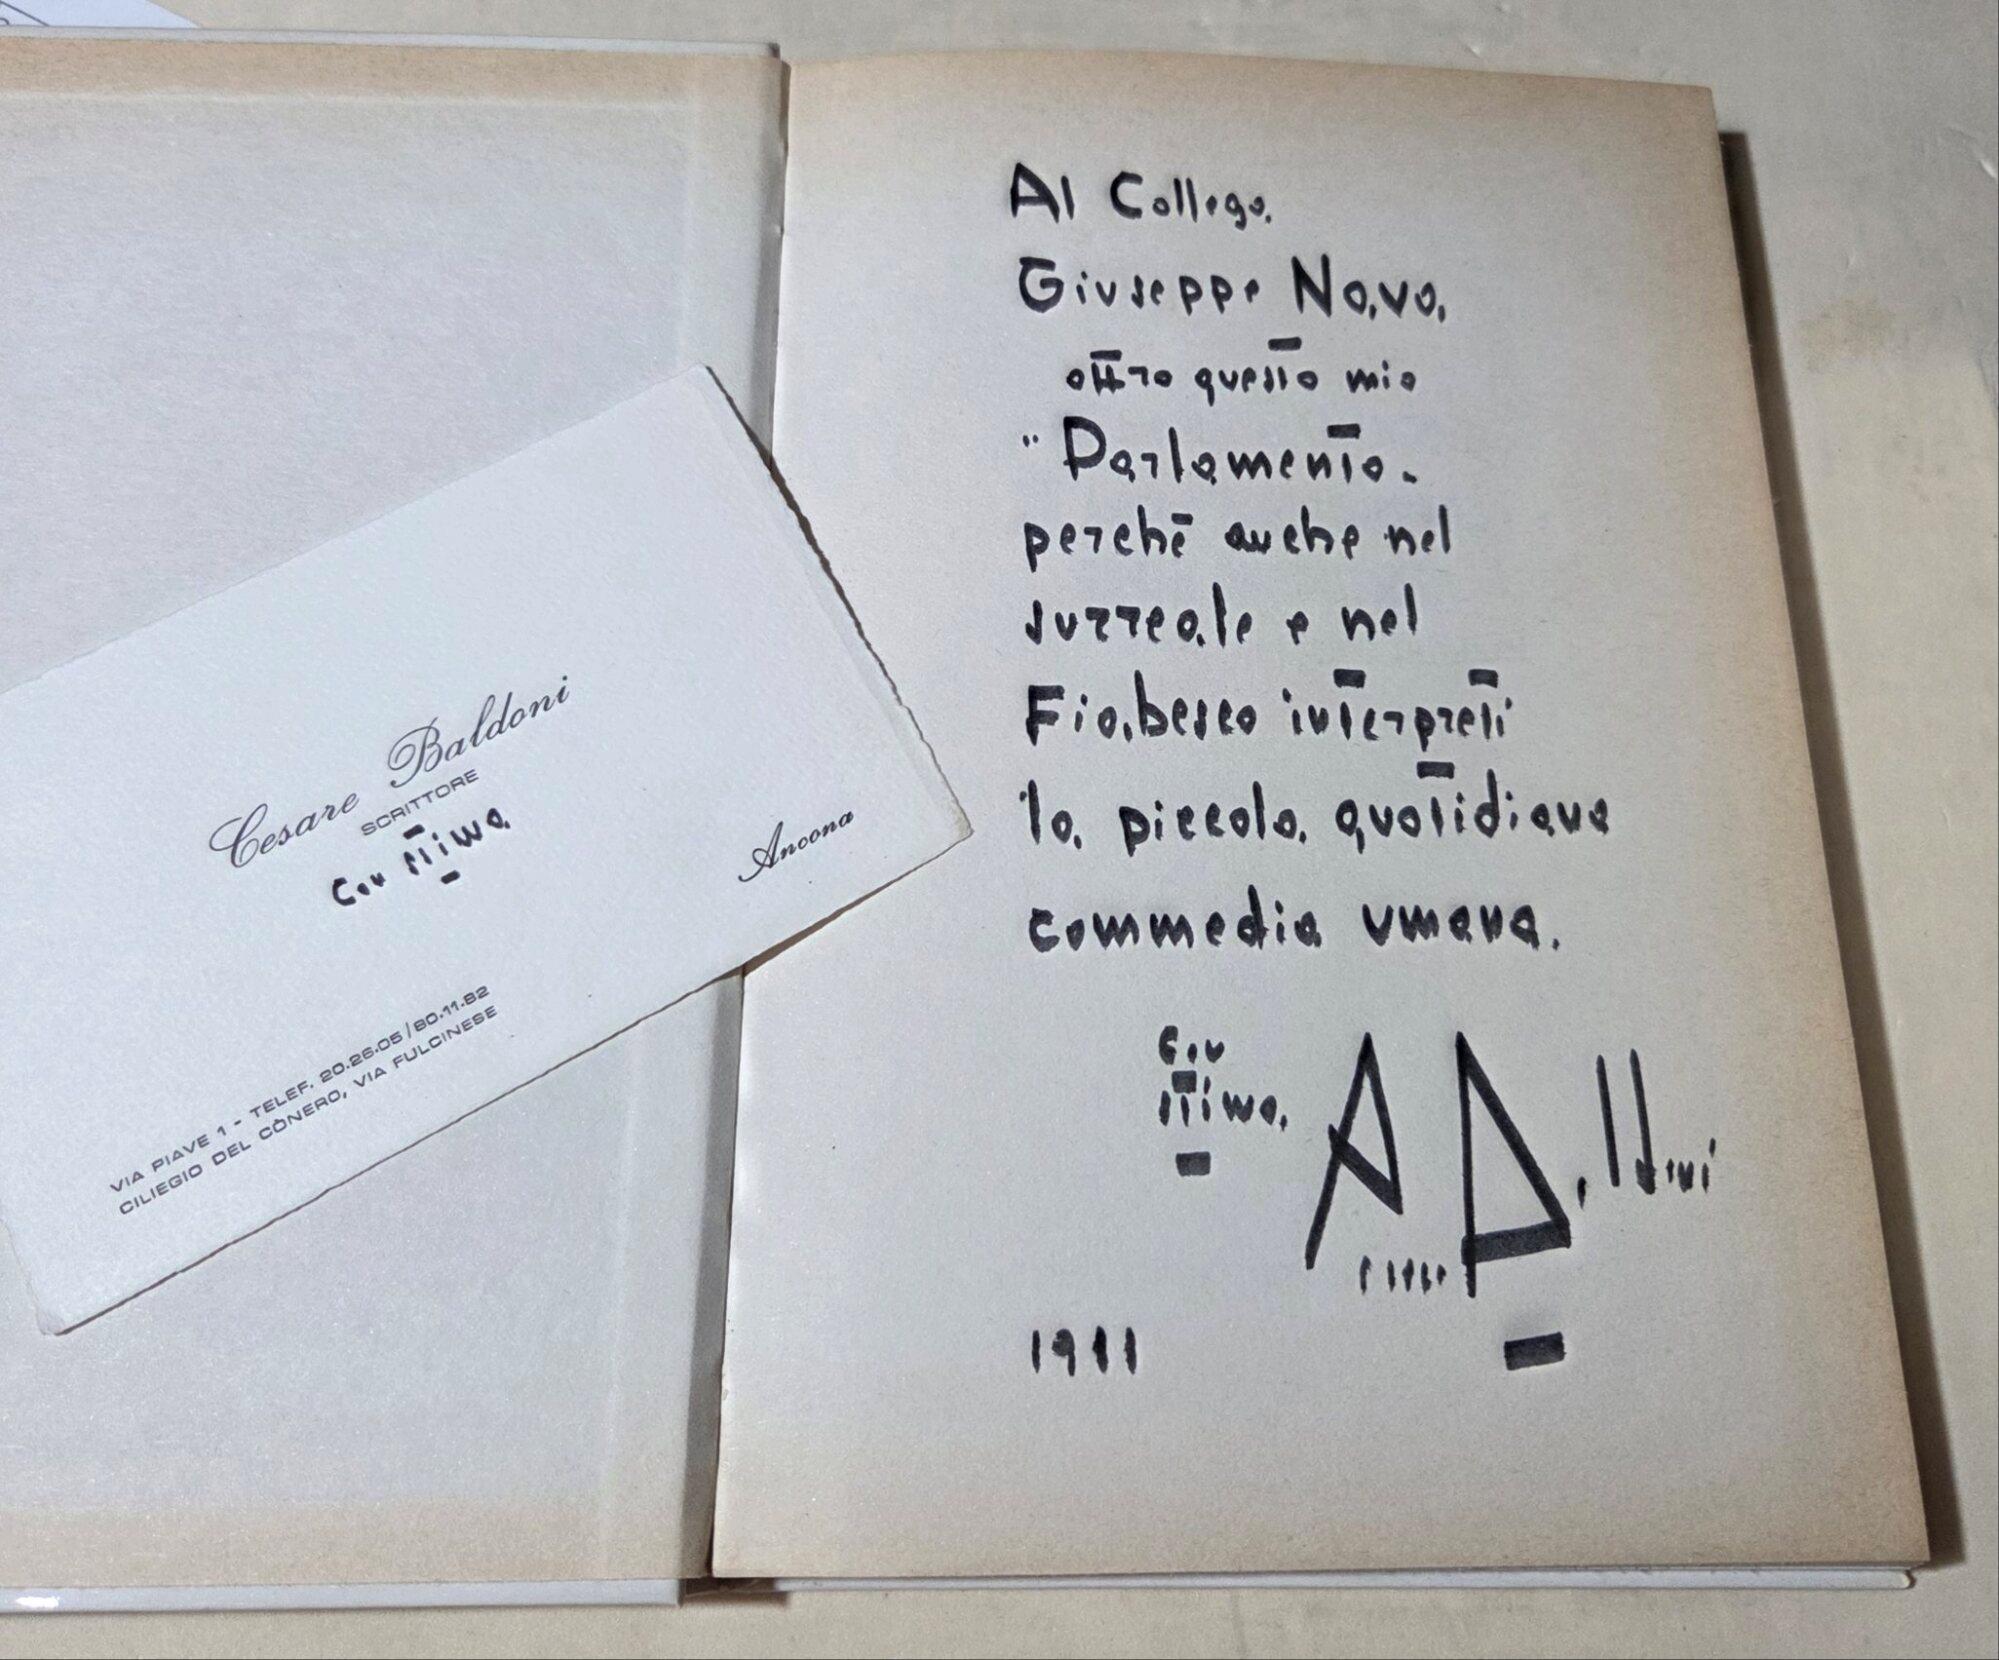 Cesare Baldoni
SCRITTORE
con stima
Ancona
VIA PIAVE 1 - TELEF. 20.26.05/80.11.82
CILIEGIO DEL CÒNERO, VIA FULCINESE
Al Collega
Giuseppe Nava
offro questo mio
"Parlamento"
perché anche nel
surreale e nel
Fiabesco interpreti
la piccola quotidiana
commedia umana.
con
stima
Baldoni